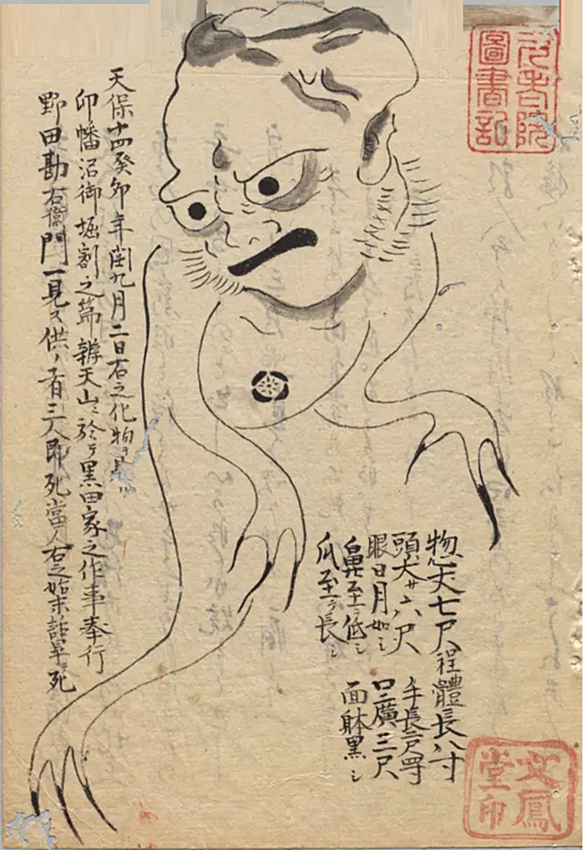 元老院
圖書記
惣丈七尺程體長八寸
頭大サ六尺 手長
眼日月如シ 口廣三尺
鼻至テ低シ 面躰黒シ
爪至テ長シ
天保十四癸卯年閏九月二日右之化物ヲ見
印幡沼御堀割之節辨天山ニ於テ黒田家之作事奉行
野田勘右衛門一見ス供ノ者三人即死當人右之始末ノ話 死
文鳳
堂印